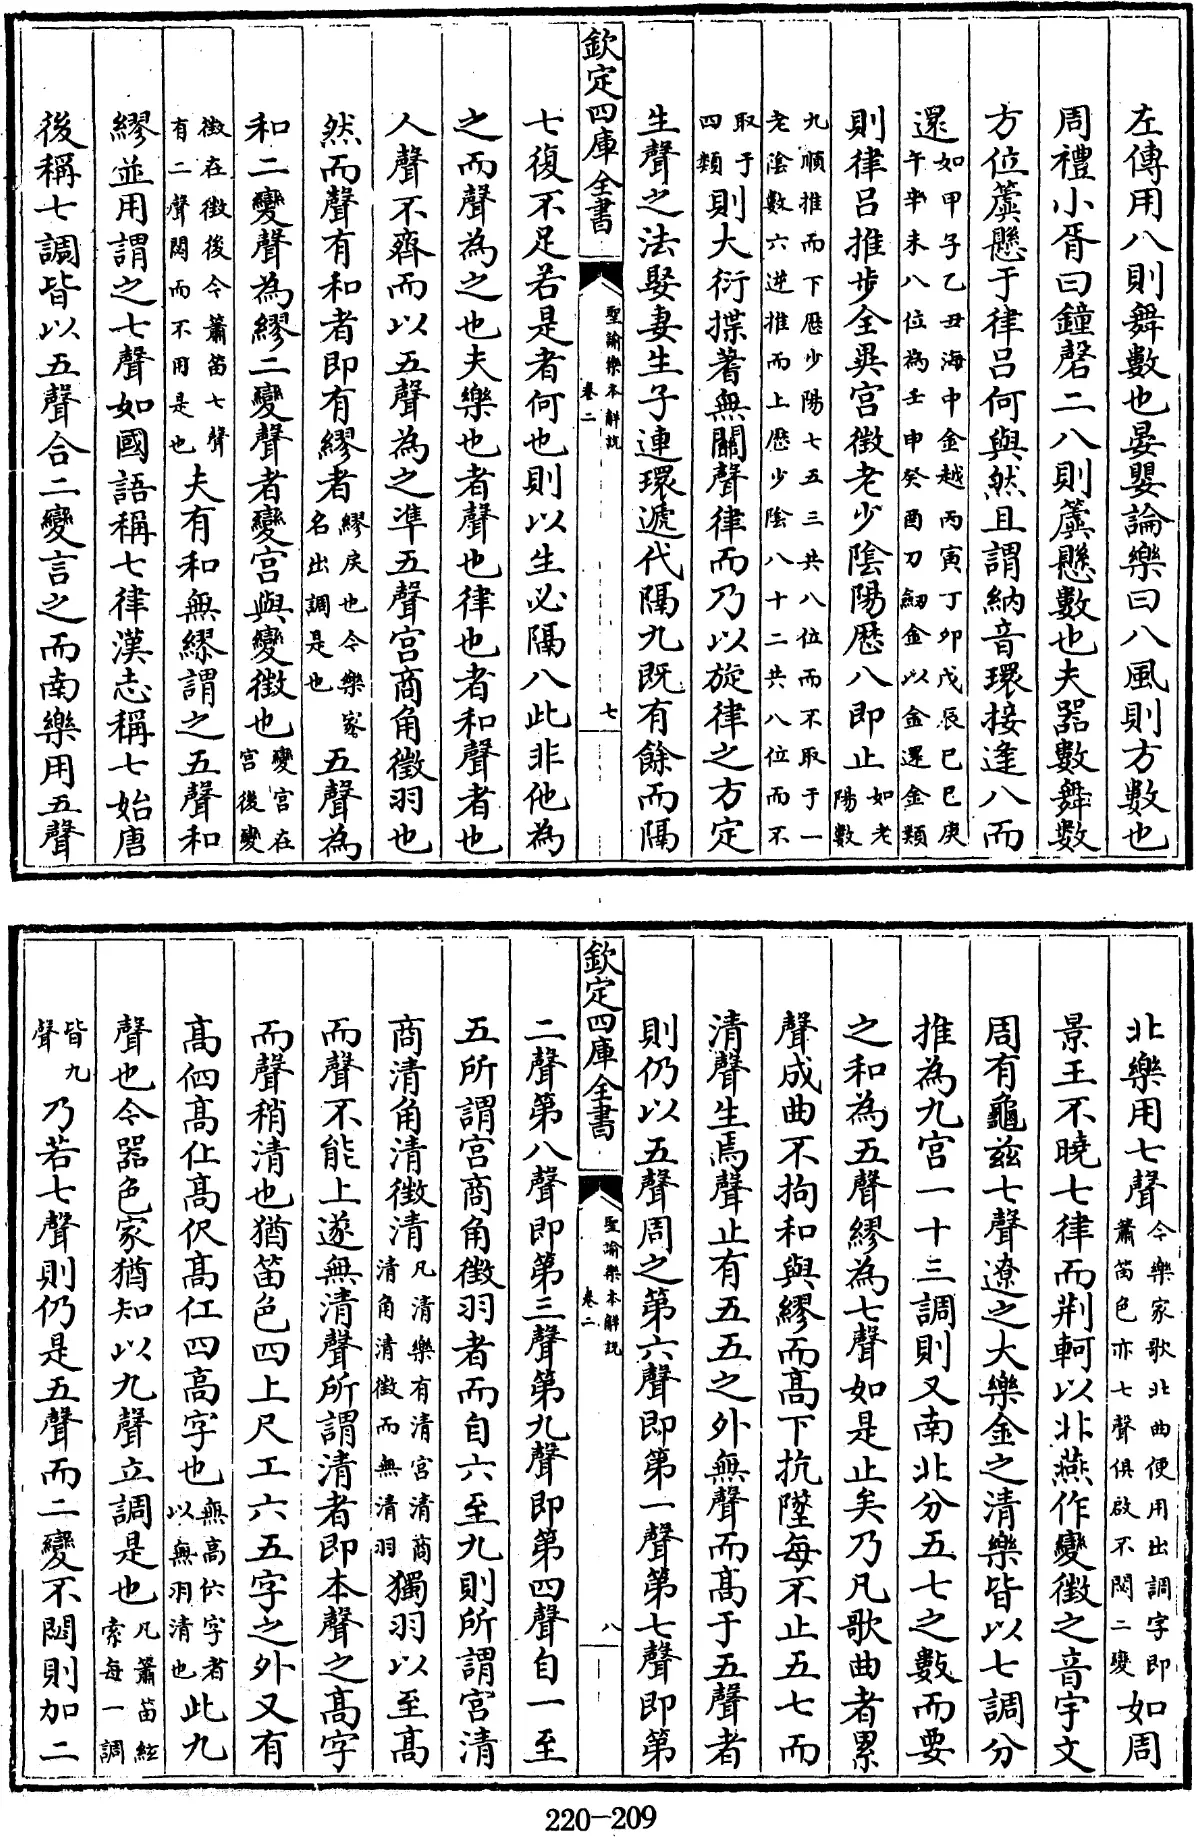 左傳用八則舞數也晏嬰論樂曰八風則方數也
周禮小胥曰鐘磬二八則簴懸數也夫器數舞數
方位簴懸于律呂何與然且謂納音環接逢八而
還如甲子乙丑海中金越丙寅丁卯戊辰己巳庚午辛未八位為壬申癸酉刀劒金以金還金類
則律呂推步全異宮徵老少陰陽歷八即止如老陽數
九順推而下歷少陽七五三共八位而不取于一老陰數六逆推而上歷少陰八十二共八位而不
取于四類則大衍揲蓍無關聲律而乃以旋律之方定
生聲之法娶妻生子連環遞代隔九既有餘而隔
欽定四庫全書 聖諭樂本解說 卷二 七
七復不足若是者何也則以生必隔八此非他為
之而聲為之也夫樂也者聲也律也者和聲者也
人聲不齊而以五聲為之準五聲宮商角徵羽也
然而聲有和者即有繆者繆戾也今樂家名出調是也五聲為
和二變聲為繆二變聲者變宮與變徵也變宮在宮後變
徵在徵後今簫笛七聲有二聲閟而不用是也夫有和無繆謂之五聲和
繆並用謂之七聲如國語稱七律漢志稱七始唐
後稱七調皆以五聲合二變言之而南樂用五聲
北樂用七聲今樂家歌北曲便用出調字即簫笛色亦七聲俱啟不閟二變如周
景王不曉七律而荆軻以北燕作變徵之音宇文
周有龜茲七聲遼之大樂金之清樂皆以七調分
推為九宮一十三調則又南北分五七之數而要
之和為五聲繆為七聲如是止矣乃凡歌曲者累
聲成曲不拘和與繆而高下抗墜每不止五七而
清聲生焉聲止有五五之外無聲而高于五聲者
則仍以五聲周之第六聲即第一聲第七聲即第
欽定四庫全書 聖諭樂本解說 卷二 八
二聲第八聲即第三聲第九聲即第四聲自一至
五所謂宮商角徵羽者而自六至九則所謂宮清
商清角清徵清凡清樂有清宮清商清角清徵而無清羽獨羽以至高
而聲不能上遂無清聲所謂清者即本聲之高字
而聲稍清也猶笛色四上尺工六五字之外又有
高㐵高仩高伬高仜四高字也無高伬字者以無羽清也此九
聲也今器色家猶知以九聲立調是也凡簫笛絃索每一調
皆九聲乃若七聲則仍是五聲而二變不閟則加二
220-209